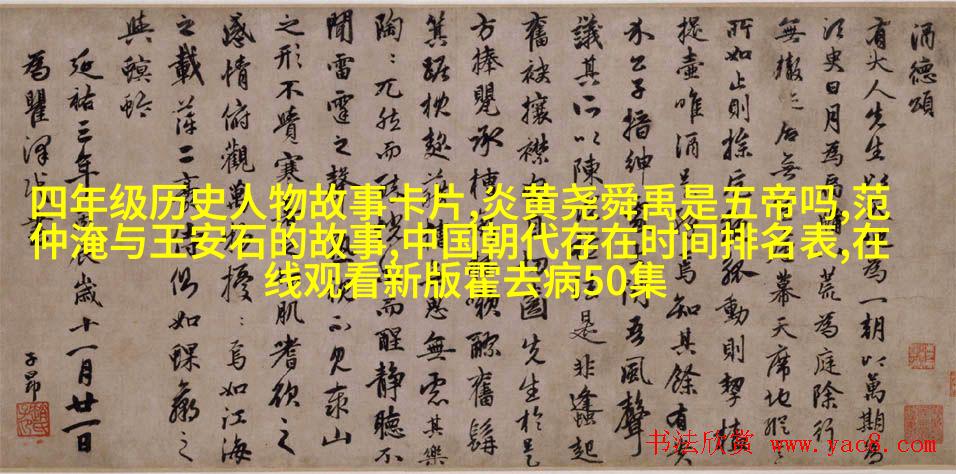 酒德頌
有大人先生以為一朝以萬期為
須臾日月為扃荒為庭除行
無轍迹居無幕天席地縱
所如止則操觚動則挈榼
提壺唯酒是焉知其餘有貴
介公子搢紳吾風聲
議其所以陳是非蜂起
奮袂攘襟切齒先生於是
方捧甖承槽漱醪奮髯
箕踞枕麴藉無慮其樂
陶:兀然而而醒靜聽不
聞雷霆之聲不見泰山
之形不覺寒肌嗜欲之
感情俯觀萬擾:焉如江海
之載浮萍二豪侍側如蜾蠃之
與螟蛉
延祐三年歲十一月廿一日
為瞿澤
子昂
四年级历史人物故事卡片,炎黄尧舜禹是五帝吗,范
仲淹与王安石的故事,中国朝代存在时间排名表,在
线观看新版霍去病50集
书法欣赏 www.yac8.com